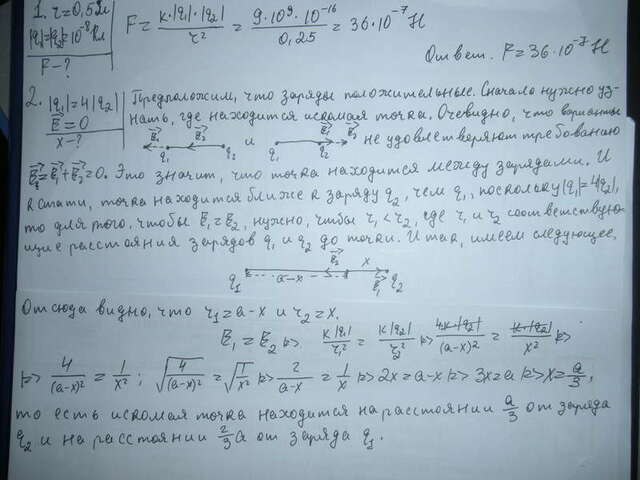 1. r=0,5м
|q₁|=|q₂|=10⁻⁸Кл
F-?
F = k·|q₁|·|q₂| / r² = 9·10⁹·10⁻¹⁶ / 0,25 = 36·10⁻⁷ Н
Ответ. F=36·10⁻⁷ Н
2. |q₁|=4|q₂|
E⃗=0
x-?
Предположим, что заряды положительные. Сначала нужно уз-
нать, где находится искомая точка. Очевидно, что варианты
E⃗₂ E⃗₁ q₁ q₂ и q₁ q₂ E⃗₁ E⃗₂ не удовлетворяют требованию
E⃗=E⃗₁+E⃗₂=0. Это значит, что точка находится между зарядами. И
кстати, точка находится ближе к заряду q₂, чем q₁, поскольку |q₁|=4|q₂|,
то для того, чтобы E₁=E₂, нужно, чтобы r₁<r₂, где r₁ и r₂ соответствую-
щие расстояния зарядов q₁ и q₂ до точки. Итак, имеем следующее,
q₁ a-x E⃗₂ x E⃗₁ q₂
Отсюда видно, что r₁=a-x и r₂=x.
E₁=E₂ => k|q₁|/r₁² = k|q₂|/r₂² => 4k|q₂|/(a-x)² = k|q₂|/x² =>
=> 4/(a-x)² = 1/x² ; √(4/(a-x)²) = √(1/x²) => 2/(a-x) = 1/x => 2x=a-x => 3x=a => x=a/3,
то есть искомая точка находится на расстоянии a/3 от заряда
q₂ и на расстоянии 2/3 a от заряда q₁.